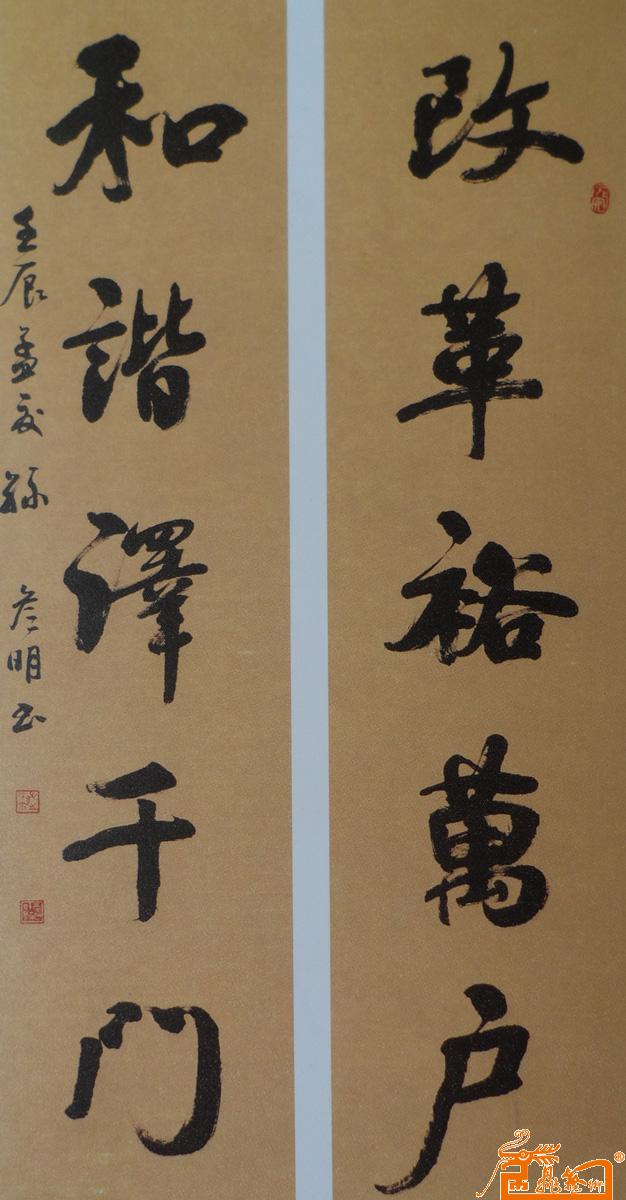 改革裕萬户
和諧澤千门
壬辰孟夏孫彦明书